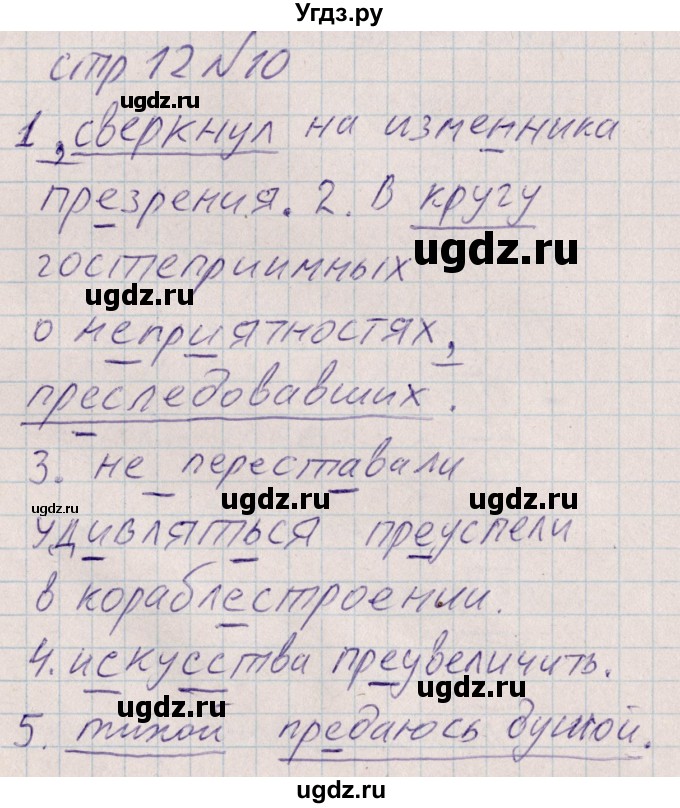 Угдз.ру
стр 12 №10
ugdz.ru
1, сверкнул на изменника
презрения. 2. В кругу
ugdz.ru
гостеприимных
ugdz.ru
о неприятностях,
преследовавших.
ugdz.ru
3. не переставали
ugdz.ru ugdz.ru ugdz.ru
удивляться преуспели
в кораблестроении.
ugdz.ru
4. искусства преувеличить.
ugdz.ru ugdz.ru
5. тихой предаюсь душой.
ugdz.ru